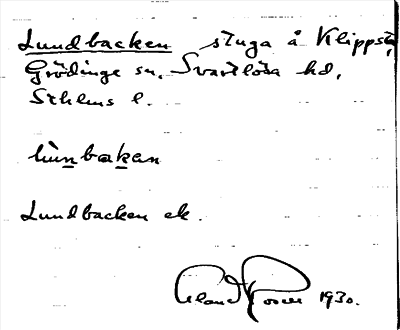 Lundbacken stuga å Klippsta,
Grödinge sn, Svartlösa hd,
Sthlms l.
lùnbakan
Lundbacken ek.
1930.